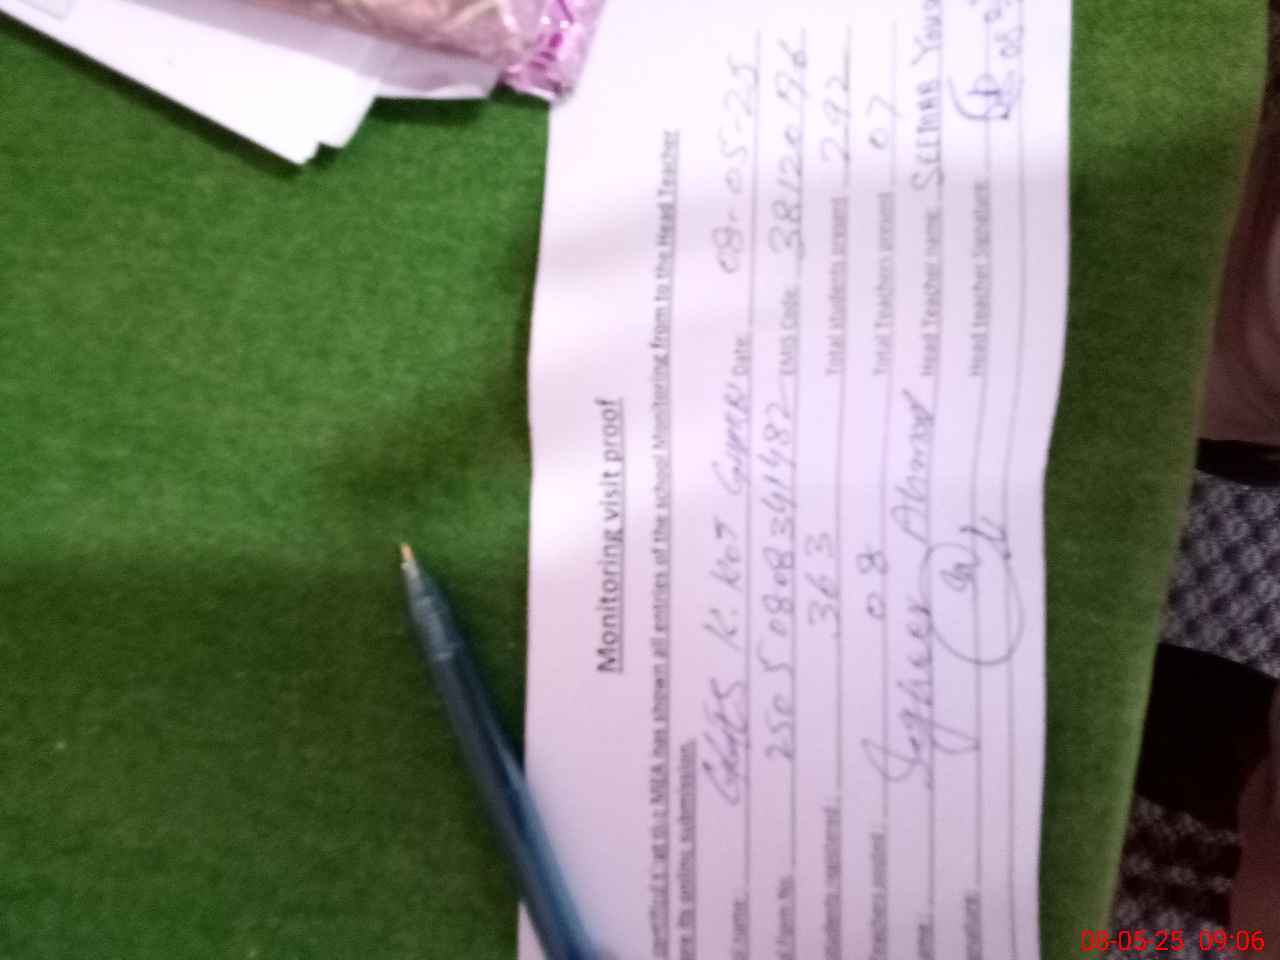 Monitoring visit proof
certified that the MEA has shown all entries of the school Monitoring from to the Head Teacher
before its online submission.
name: Date 08-05-25
Form No. 25050808341482 EMIS Code 38120196
students reported: 363 Total students present 292
Teachers posted: 08 Total Teachers present 07
Ahmad Head Teacher name SEEMAB
Head teacher Signature
08-05-25 09:06